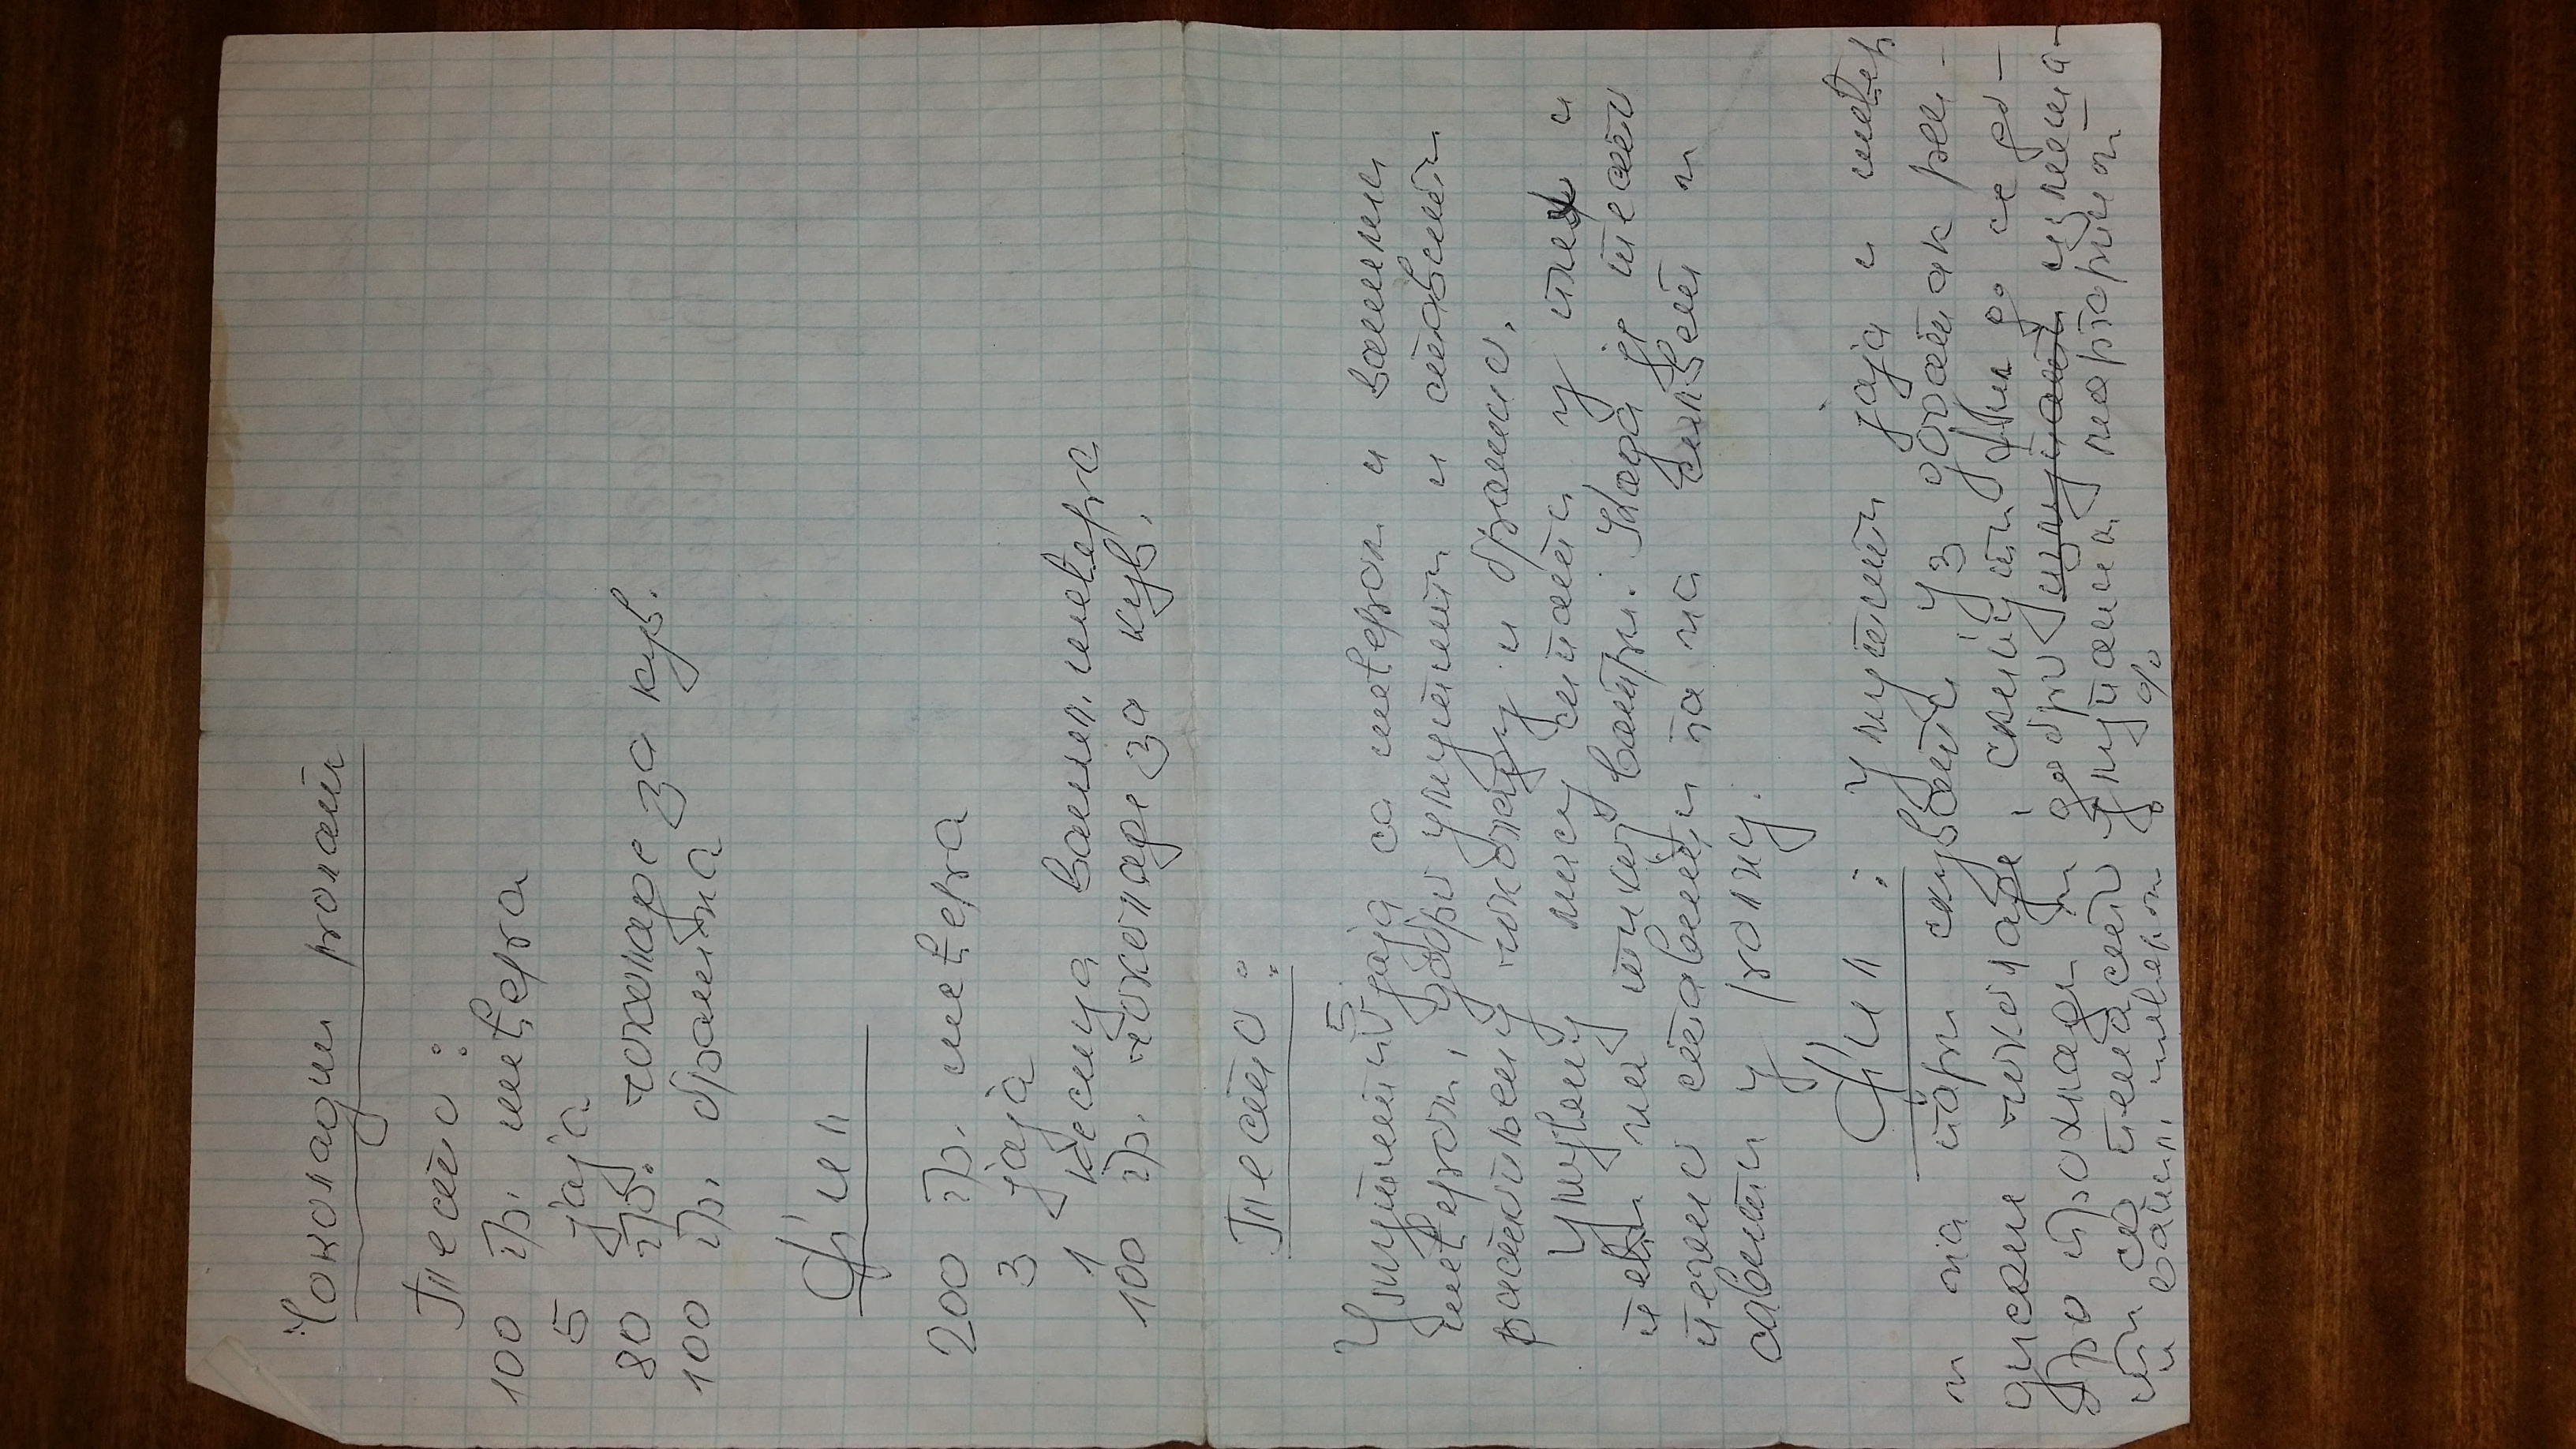 Чоколадни ролат
Тесто:
100 гр. шећера
5 јаја
80 гр. чоколаде за кув.
100 гр. брашна
Фил
200 гр. шећера
3 јаја
1 кесица ванил. шећера
100 гр. чоколаде за кув.
Тесто:
Умутити 5 јаја са шећером и ванилин
шећером, добро умутити и ставити
растопљену чоколаду и брашно.
Умућену масу сипати у плех и
пећи на тихој ватри. Када је тесто
печено ставити га на салвет и
савити у ролну.
Фил: Умутити јаја и шећер
и на пари скувати, уз додатак рен-
дисане чоколаде, скинути фил да се до-
бро прохлади и добро измеша-
ти са пенасто умућеном маргарином
и ванил. шећером %